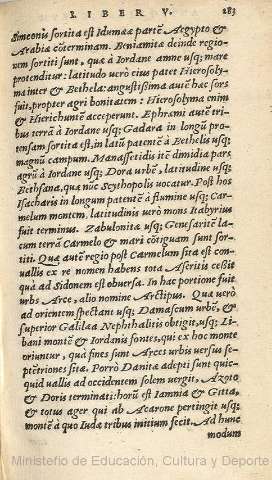 LIBER V. 283
Simeonis sortita est Idumææ partẽ Aegypto &
Arabiæ cõterminam. Beniamitæ deinde regio-
nem sortiti sunt, quæ à Iordane amne usq; mare
protenditur: latitudo uerò eius patet Hierosoly-
ma inter & Bethela: angustissima autẽ hæc sors
fuit, propter agri bonitatem: Hierosolyma enim
& Hierichuntẽ acceperunt. Ephrami autẽ tri-
bus terrã à Iordane usq; Gadara in longũ pro-
tensam sortita est, in latũ patentẽ à Bethelis usq;
magnũ campum. Manassetidis itẽ dimidia pars,
agrũ à Iordane usq; Dora urbẽ, latitudine usq;
Bethsana, quæ nũc Scythopolis uocatur. Post hos
Isacharis in longum patentẽ à flumine usq; Car-
melum montem, latitudinis uerò mons Itabyrius
fuit terminus. Zabulonitæ usq; Genesaritẽ la-
cum terrã Carmelo & mari cõtiguam sunt sor-
titi. Quæ autẽ regio post Carmelum sita est con-
uallis ex re nomen habens tota Aseritis cessit
quà ad Sidonem est obuersa. In hac portione fuit
urbs Arce, alio nomine Arctipus. Quæ uerò
ad orientem spectant usq; Damascum urbẽ, &
superior Galilæa Nephthalitis obtigit, usq; Li-
bani montẽ & Iordanis fontes, qui ex hoc monte
oriuntur, quà fines sunt Arces urbis uersus se-
ptẽtriones sitæ. Porrò Danitæ adepti sunt quic-
quid uallis ad occidentem solem uergit, Azoto
& Doris terminati: horũ est Iamnia & Gitta,
& totus ager qui ab Acarone pertingit usq;
montẽ à quo Iuda tribus initium fecit. Ad hunc
modum
Ministerio de Educación, Cultura y Deporte